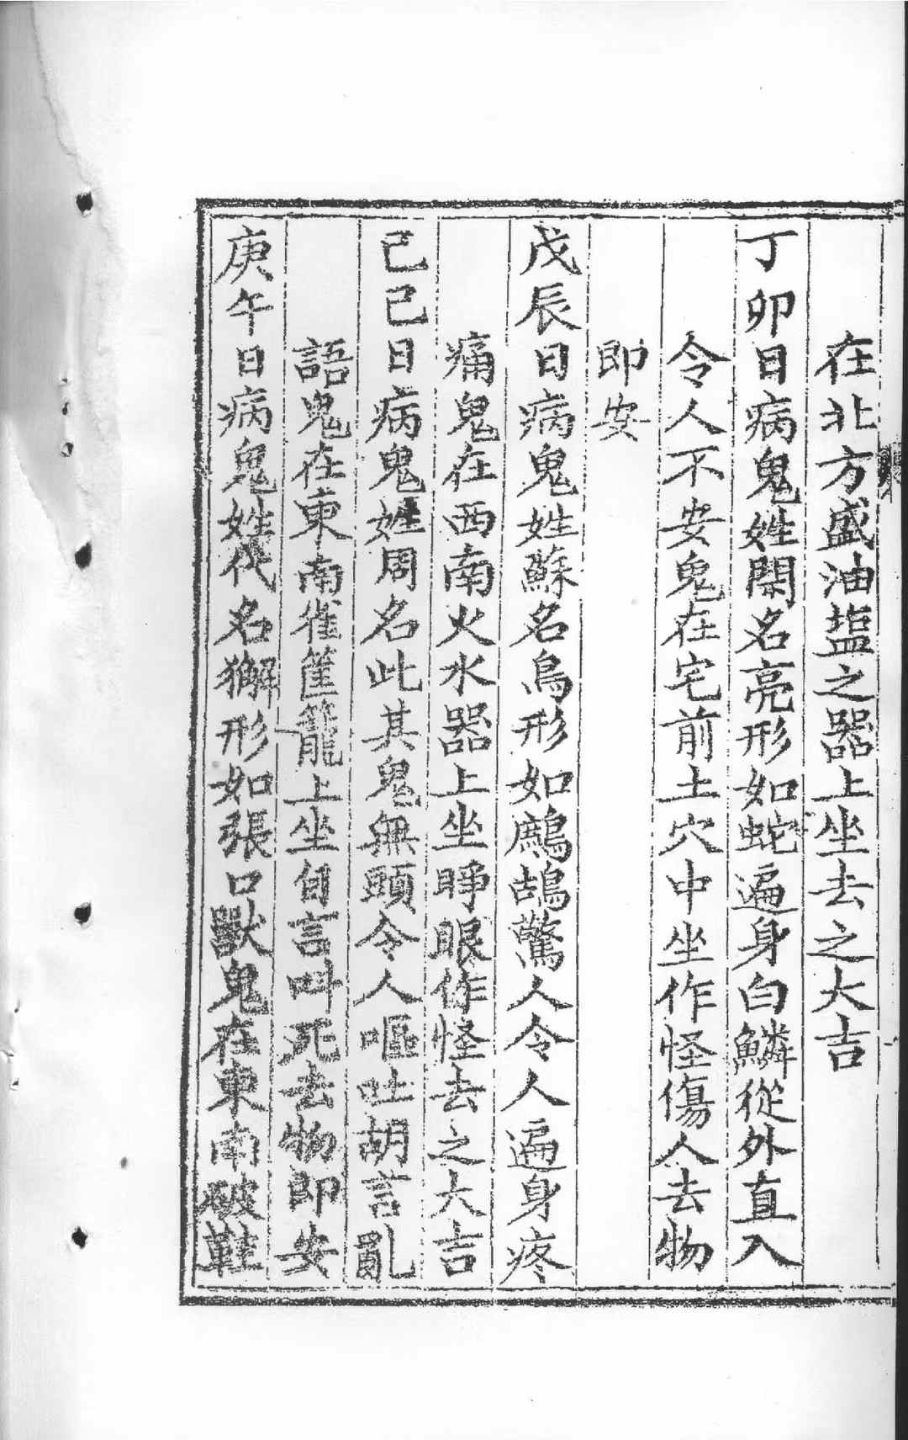 在北方盛油塩之器上坐去之大吉
丁卯日病鬼姓閑名亮形如蛇遍身白鱗從外直入
令人不安鬼在宅前土穴中坐作怪傷人去物
即安
戊辰日病鬼姓蘇名鳥形如鷓鴣驚人令人遍身疼
痛鬼在西南火水器上坐睜眼作怪去之大吉
己巳日病鬼姓周名此其鬼無頭令人嘔吐胡言亂
語鬼在東南雀筐籠上坐自言叫死去物即安
庚午日病鬼姓代名獬形如張口獸鬼在東南破鞋